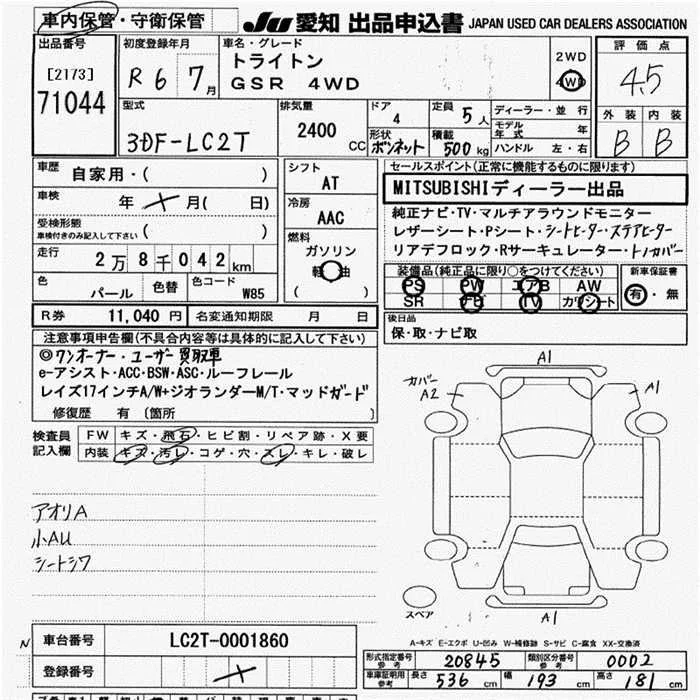 車内保管・守衛保管
JU 愛知 出品申込書 JAPAN USED CAR DEALERS ASSOCIATION
出品番号
[2173]
71044
初度登録年月
R 6 7月
車名・グレード
トライトン
GSR 4WD
2WD
4WD
評価点
4.5
外装 内装
B B
型式
3DF-LC2T
排気量
2400
CC
ドア
4
形状
ボンネット
定員
5人
積載
500kg
ディーラー・並行
モデル年式 年
ハンドル 左・右
車歴
自家用・( )
車検
年 月( 日)
受検形態
車検付きのみ記入して下さい ( )
走行
2万8千042km
色
パール
色替
色コード
W85
シフト
AT
冷房
AAC
燃料
ガソリン
軽油
( )
セールスポイント(正常に機能するものに限ります)
MITSUBISHIディーラー出品
純正ナビ・TV・マルチアラウンドモニター
レザーシート・Pシート・シートヒーター・ステアヒーター
リアデフロック・Rサーキュレーター・トノカバー
装備品(純正品に限り○をつけてください)
PS PW エアB AW
SR ナビ TV カワシート
新車保証書
有・無
R券 11,040円
名変通知期限 月 日
後日品
保・取・ナビ取
注意事項申告欄(不具合内容等は具体的に記入して下さい)
◎ワンオーナー・ユーザー買取車
e-アシスト・ACC・BSW・ASC・ルーフレール
レイズ17インチA/W+ジオランダーM/T・マッドガード
修復歴 有 〔箇所 〕
検査員記入欄
FW キズ・飛石・ヒビ割・リペア跡・X要
内装 キズ・汚レ・コゲ・穴・スレ・キレ・破レ
アオリA
小AU
シートシワ
A1
カバー
A2
A1
スペア
A1
A-キズ E-エクボ U-凹み W-補修跡 S-サビ C-腐食 XX-交換済
N
車台番号
LC2T-0001860
登録番号
形式指定番号
参考
20845
類別区分番号
参考
0002
車庫証明用
参考
長さ
536cm
幅
193cm
高さ
181cm